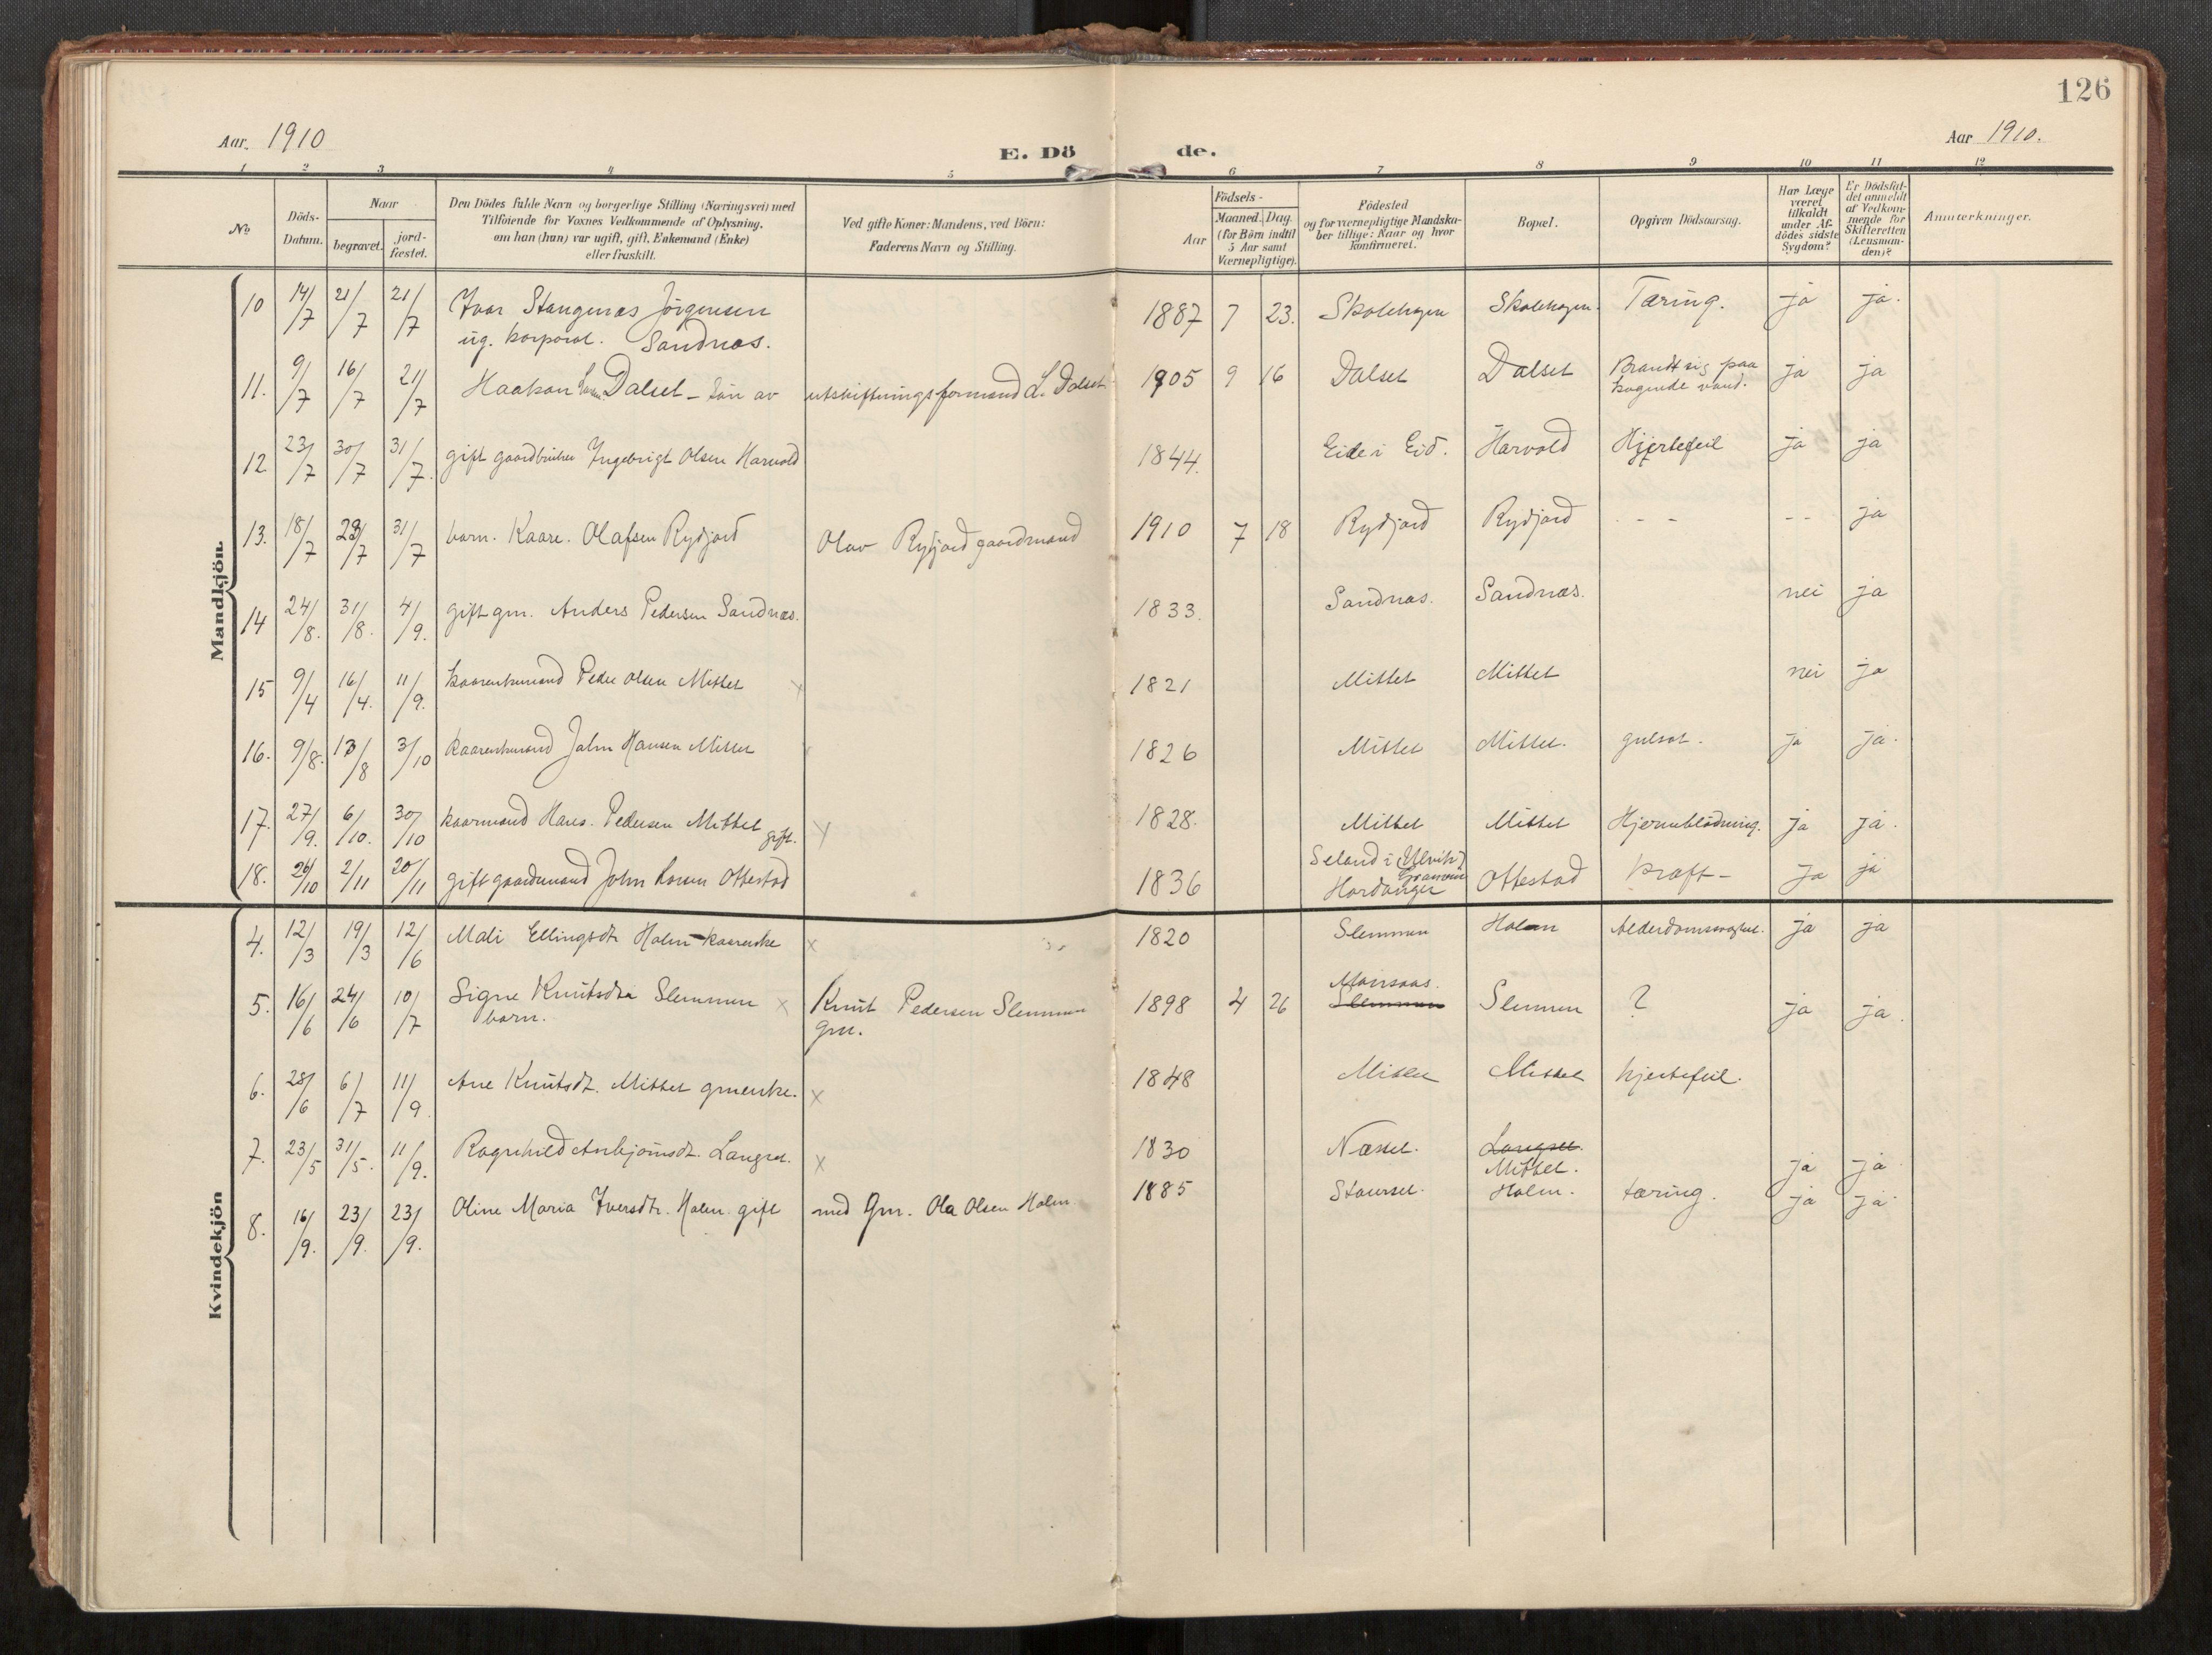 126
Aar. 1910
E. Dö de.
Aar 1910.
1 2 3 4 5 6 7 8 9 10 11 12
No
Döds-
Datum.
Naar
begravet.
jord-
fæstet.
Den Dödes fulde Navn og borgerlige Stilling (Næringsvei) med
Tilföiende for Voxnes Vedkommende af Oplysning,
om han (hun) var ugift, gift, Enkemand (Enke)
eller fraskilt.
Ved gifte Koner: Mandens, ved Börn:
Faderens Navn og Stilling.
Födsels-
Aar
Maaned. Dag.
(for Börn indtil
5 Aar samt
Værnepligtige).
Födested
og for værnepligtige Mandska-
ber tillige: Naar og hvor
Konfirmeret.
Bopæl.
Opgiven Dödsaarsag.
Har Læge
været
tilkaldt
under Af-
dödes sidste
Sygdom?
Er Dödsfal-
det anmeldt
af Vedkom-
mende for
Skifteretten
(Lensman-
den)?
Anmærkninger.
Mandkjön.
10 14/7 21/7 21/7 Ivar Stangenæs Jörgensen 1887 7 23. Skolehagen Skolehagen. Tæring. ja ja.
ug. korporal. Sandnæs.
11. 9/7 16/7 21/7 Haakon Dalset - sön av utskiftningsformand L. Dalset 1905 9 16 Dalset Dalset Brandt sig paa ja ja
kogende vand.
12 23/7 30/7 31/7. gift gaardbruker Ingebrigt Olsen Harvold 1844. Eide i Eid. Harvold Hjertefeil ja ja
13. 18/7 23/7 31/7 barn. Kaare. Olafsen Rydjord Olav Rydjord gaardmand 1910 7 18 Rydjord Rydjord - - - - ja
14 24/8. 31/8. 4/9. gift gm. Anders Pedersen Sandnæs. 1833. Sandnæs. Sandnæs. nei ja
15 9/4 16/4. 11/9. kaarenkemand Peder Olsen Mittet x 1821 Mittet Mittet nei ja
16. 9/8. 13/8 3/10 kaarenkemand Jahn Hansen Mittet 1826 Mittet Mittet. gulsot. ja ja.
17. 27/9. 6/10. 30/10 kaarmand Hans. Pedersen Mittet gift. x 1828. Mittet Mittet Hjerneblödning. ja ja.
Seland i (Ulvik)
Granvin
18. 26/10 2/11 20/11 gift gaardmand John Larsen Ottestad 1836 Hardanger Ottestad Kræft- ja ja
Kvindekjön
4. 12/3 19/3 12/6 Mali Ellingsdt. Holm - kaarenke x 1820 Slemmen Holm Alderdomssvaghet. ja ja
Monsaas.
5. 16/6 24/6 10/7 Signe Knutsdtr Slemmen x Knut Pedersen Slemmen 1898 4 26 Slemmen Slemmen ? ja ja.
barn. gm.
6. 28/6 6/7 11/9. Ane Knutsdt. Mittet gmenke. x 1848 Mittet Mittet hjertefeil.
7. 23/5 31/5. 11/9. Ragnhild Anbjörnsdt. Langset. x 1830 Næsset. Langset.
Mittet. ja ja
8. 16/9. 23/9. 23/9. Oline Maria Iversdtr. Holm. gift med Gm. Ola Olsen Holm 1885 Staurset. Holm. tæring. ja ja.